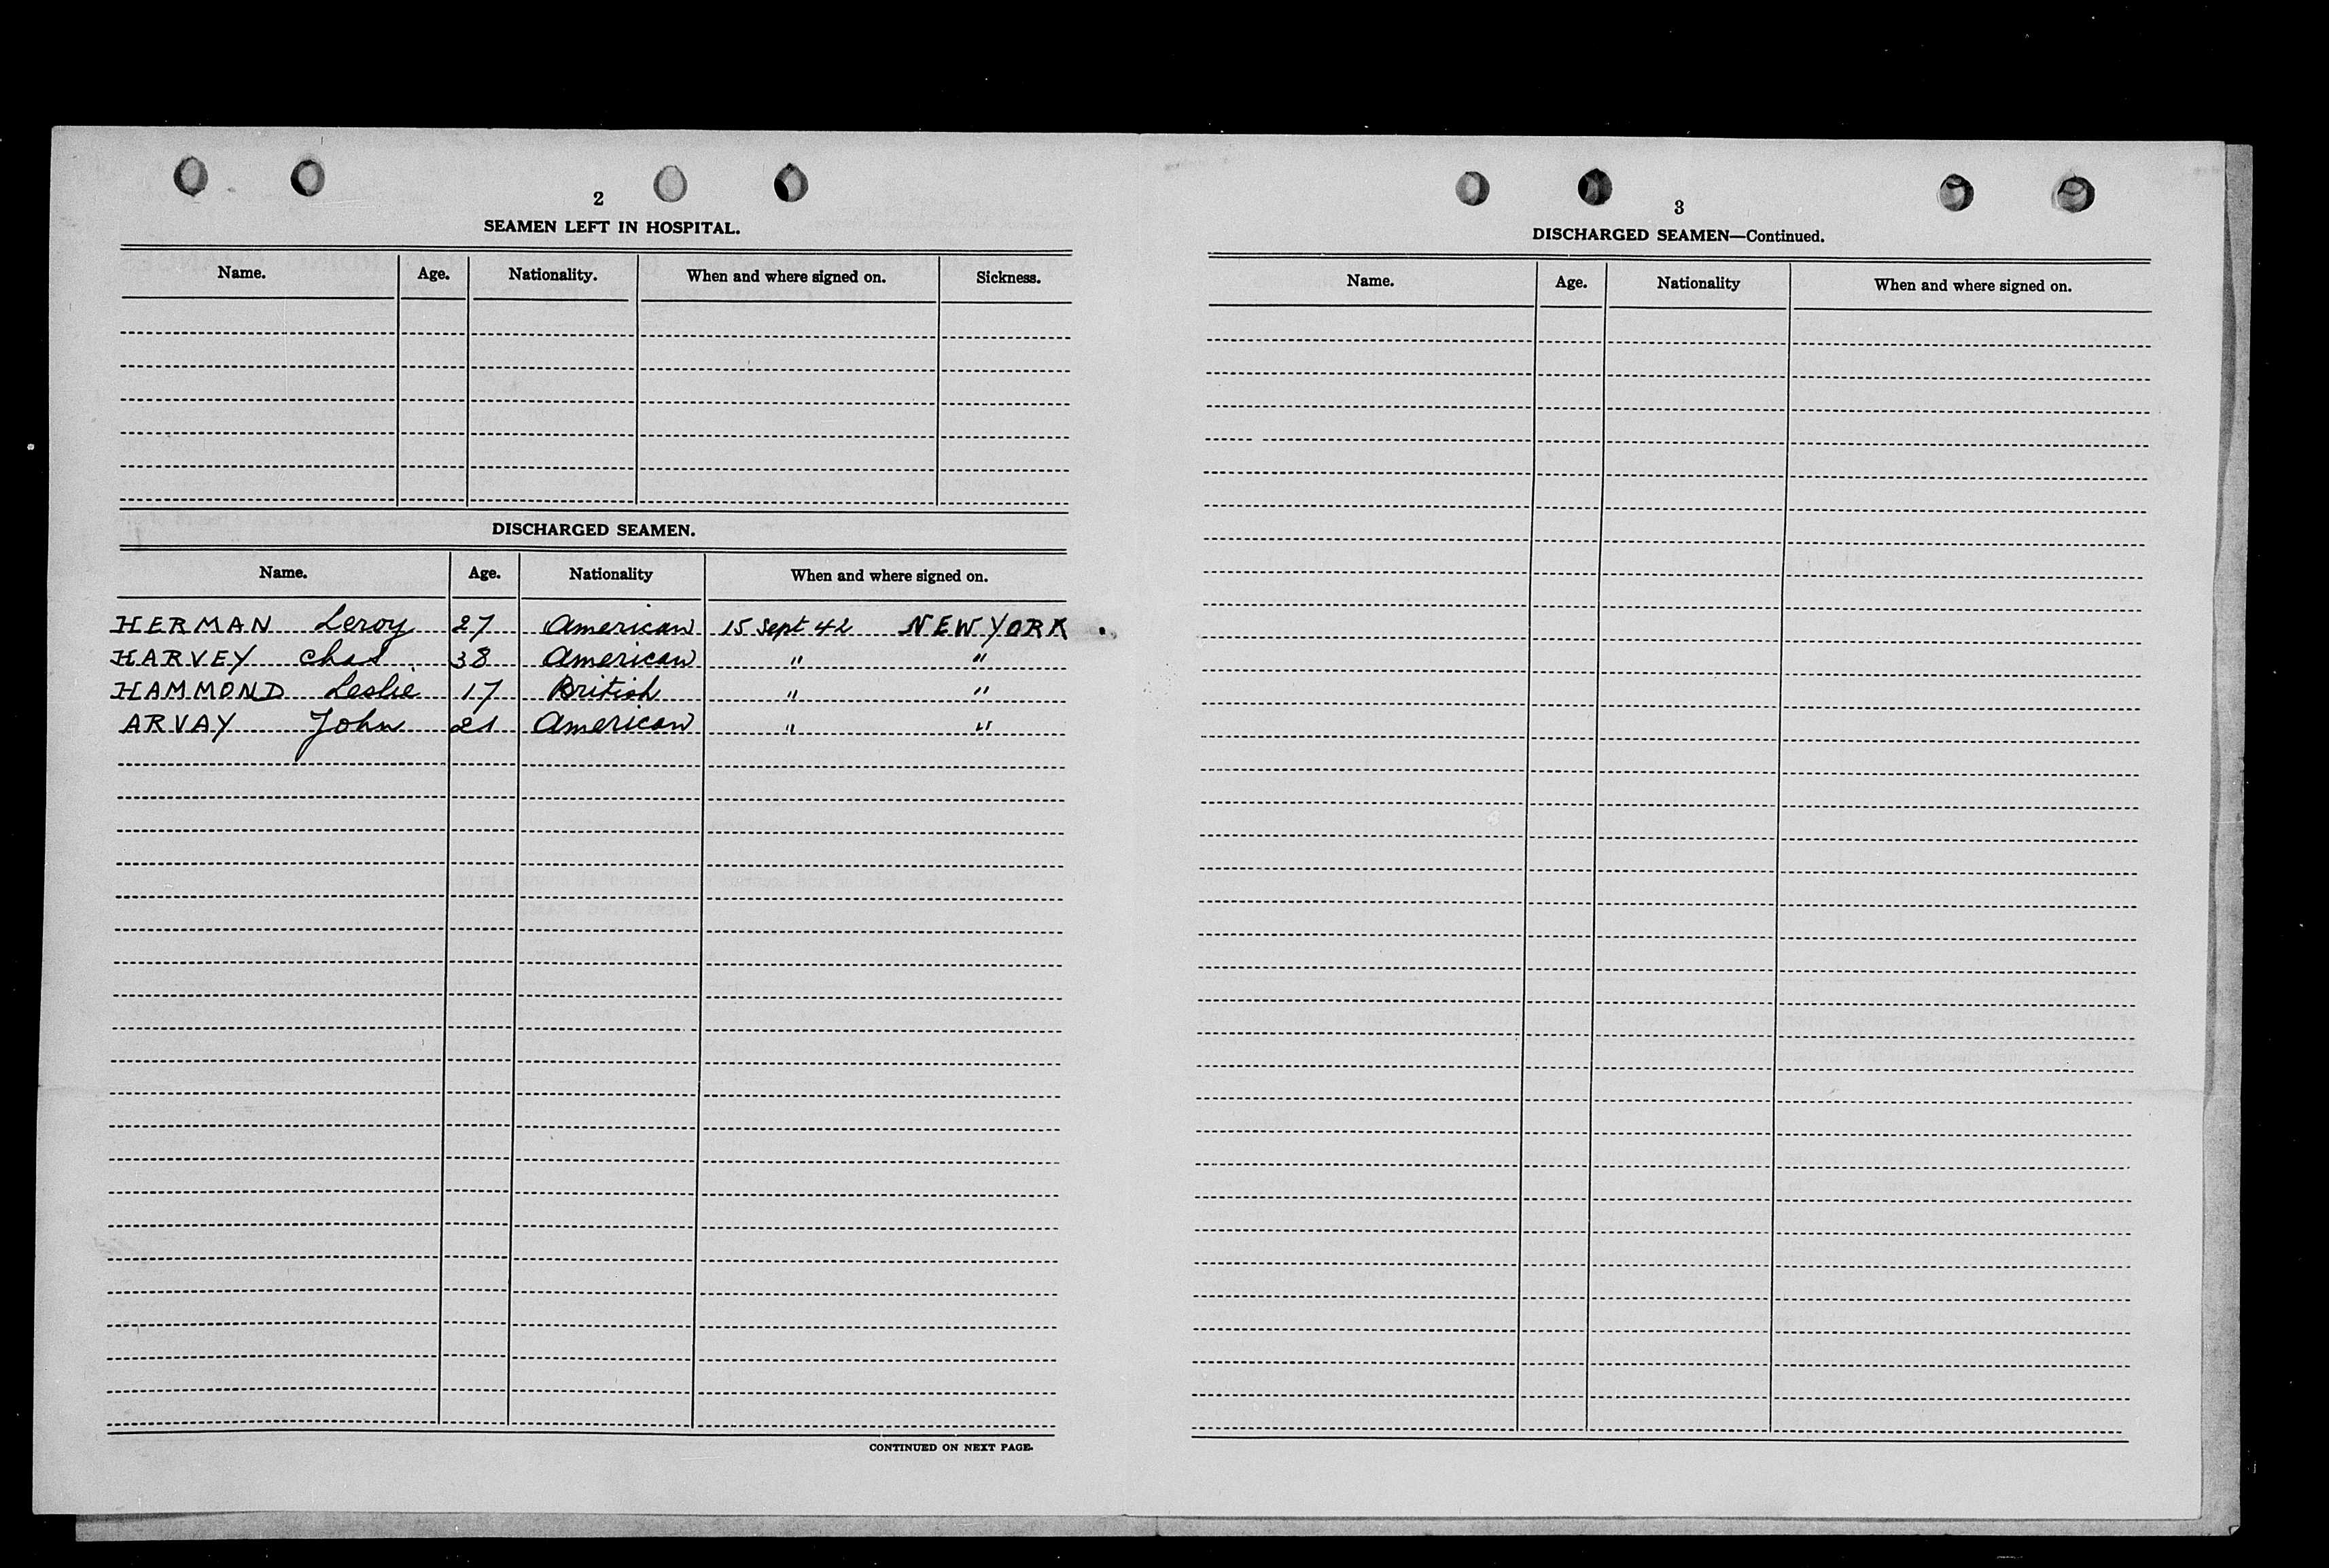 2
SEAMEN LEFT IN HOSPITAL.
Name. Age. Nationality. When and where signed on. Sickness.
DISCHARGED SEAMEN.
Name. Age. Nationality When and where signed on.
HERMAN Leroy 27 American 15 Sept 42 NEW YORK
HARVEY Chas. 38 American " "
HAMMOND Leslie 17 British " "
ARVAY John 21 American " "
CONTINUED ON NEXT PAGE.
3
DISCHARGED SEAMEN—Continued.
Name. Age. Nationality When and where signed on.